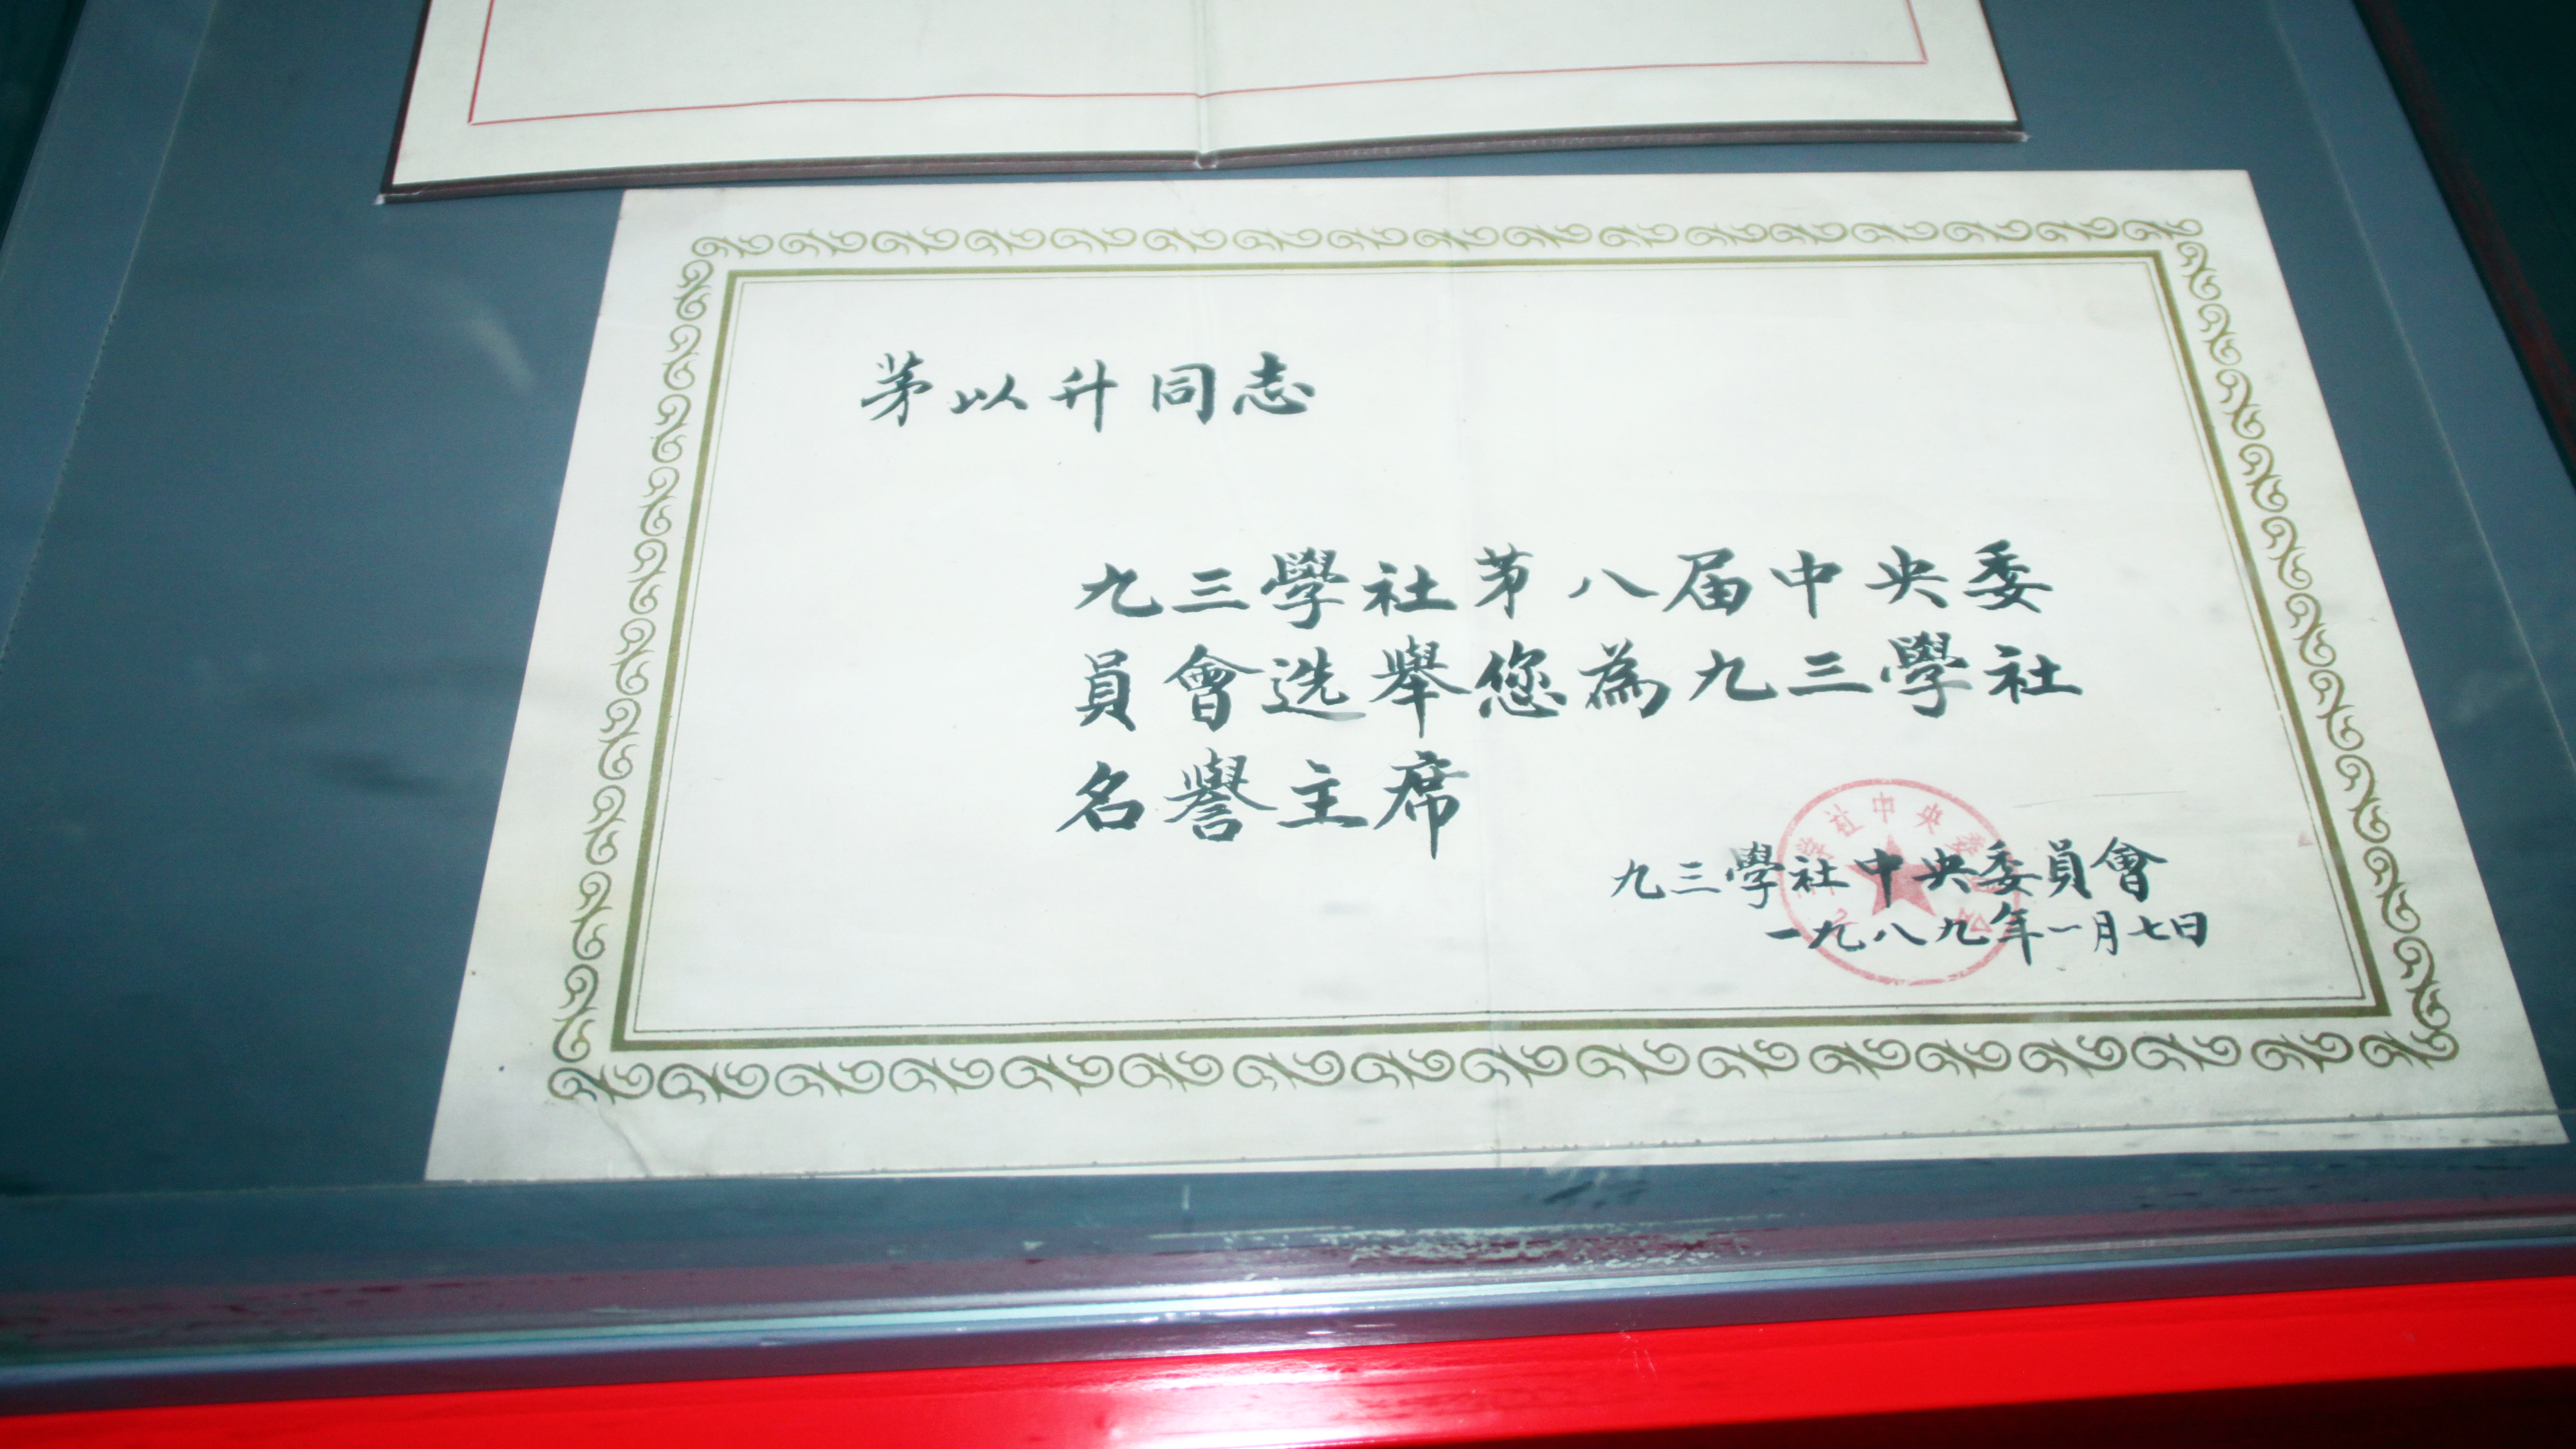 茅以升同志
九三學社苐八届中央委
員會选舉您為九三學社
名譽主席
九三學社中央委員會
一九八九年一月七日